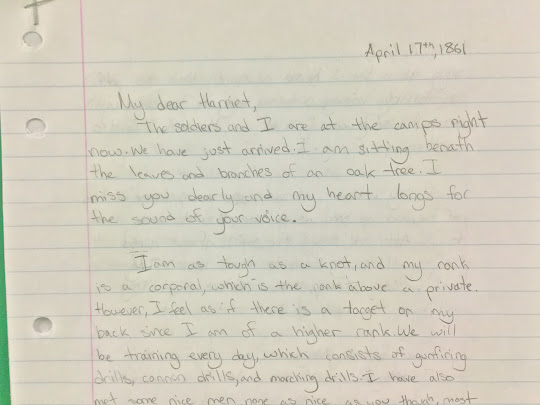 April 17th, 1861
My dear Harriet,
The soldiers and I are at the camps right
now. We have just arrived. I am sitting benath
the leaves and branches of an oak tree. I
miss you dearly and my heart longs for
the sound of your voice.
I am as tough as a knot, and my rank
is a corporal, which is the rank above a private.
However, I feel as if there is a target on my
back since I am of a higher rank. We will
be training every day, which consists of gunfiring
drills, cannon drills, and marching drills. I have also
met some nice men, none as nice as you though, most